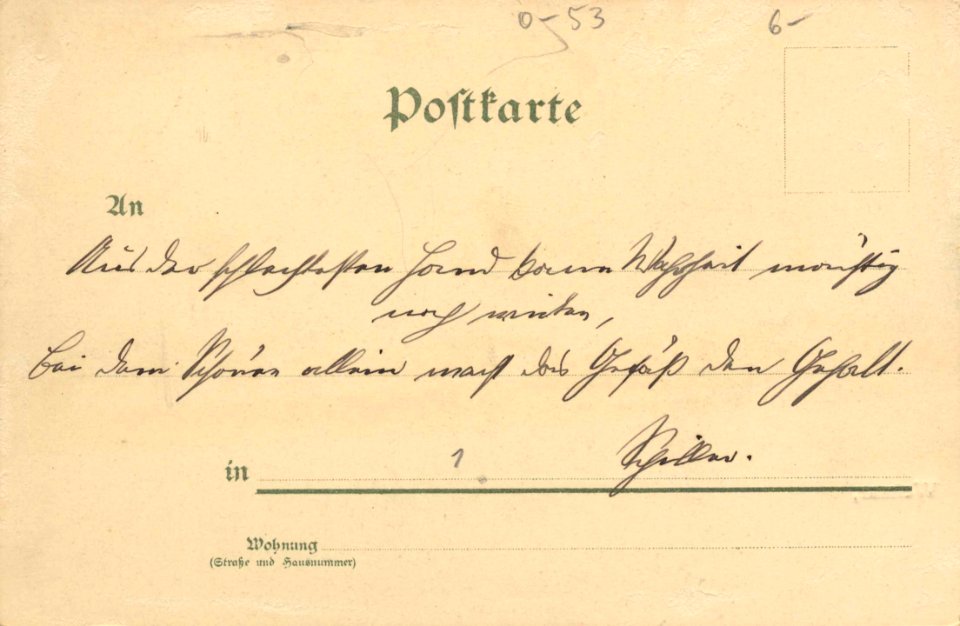 0-53 6-
Postkarte
An
Aus der schlechtesten Hand kann Wahrheit mächtig
noch wirken,
Bei dem Schönen allein macht das Gefäß den Gehalt.
Schiller.
in 1
Wohnung
(Straße und Hausnummer)